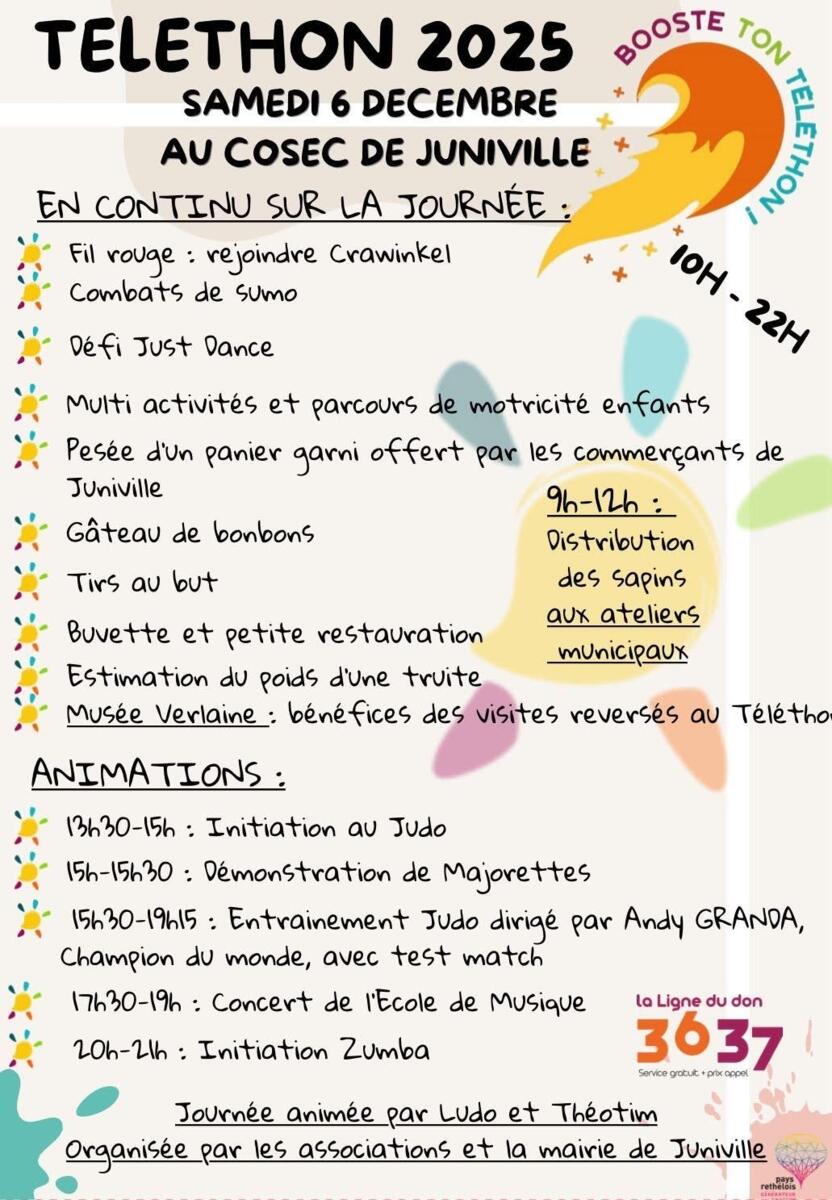 TELETHON 2025
SAMEDI 6 DECEMBRE
AU COSEC DE JUNIVILLE
BOOSTE TON TÉLÉTHON !
10H - 22H
EN CONTINU SUR LA JOURNÉE :
Fil rouge : rejoindre Crawinkel
Combats de sumo
Défi Just Dance
Multi activités et parcours de motricité enfants
Pesée d'un panier garni offert par les commerçants de
Juniville
Gâteau de bonbons
Tirs au but
Buvette et petite restauration
Estimation du poids d'une truite
Musée Verlaine : bénéfices des visites reversés au Télétho
9h-12h :
Distribution
des sapins
aux ateliers
municipaux
ANIMATIONS :
13h30-15h : Initiation au Judo
15h-15h30 : Démonstration de Majorettes
15h30-19h15 : Entrainement Judo dirigé par Andy GRANDA,
Champion du monde, avec test match
17h30-19h : Concert de l'Ecole de Musique
20h-21h : Initiation Zumba
la Ligne du don
3637
Service gratuit + prix appel
Journée animée par Ludo et Théotim
Organisée par les associations et la mairie de Juniville
pays
rethélois
GÉNÉRATEUR